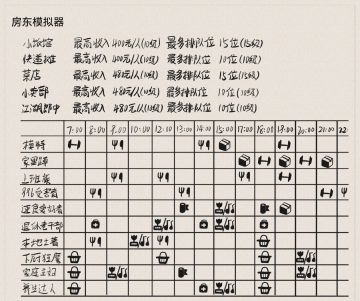 房东模拟器
小旅馆 最高收入 400元/人(10级) 最多排队位 15位(15级)
快递站 最高收入 400元/人(10级) 最多排队位 10位(10级)
菜店 最高收入 480元/人(15级) 最多排队位 15位(15级)
最高收入 480元/人(15级) 最多排队位 10位(10级)
江湖郎中 最高收入 480元/人(15级) 最多排队位 10位(10级)
7:00 8:00 9:00 10:00 12:00 13:00 14:00 15:00 17:00 18:00 19:00 20:00 21:00 22:
模特
上班族
速食爱好者
退休老干部
本地土著
家庭主妇
养生达人